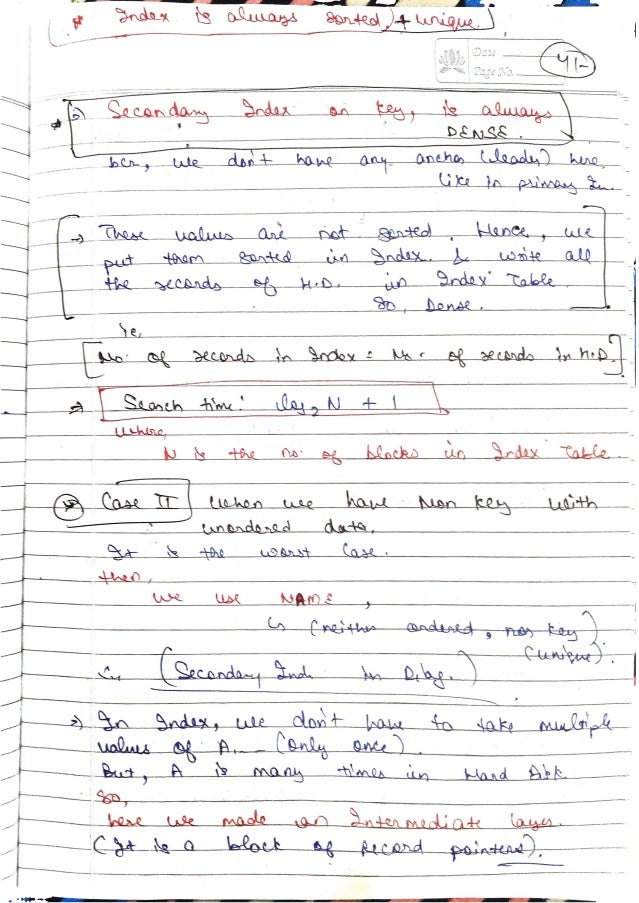 * Index is always sorted, + unique.
Date
Page No.
41-
* 2) Secondary Index on key, is always
DENSE.
bcz, we don't have any anchor (leader) here
like in primary In.
→ These values are not sorted. Hence, we
put them sorted in Index. & write all
the records of H.D. in Index Table.
So, Dense.
ie,
No. of records in Index = No. of records in H.D.
⇒ Search time: log2 N + 1
where,
N is the no. of blocks in Index Table.
Case II when we have Non key with
unordered data.
It is the worst Case.
then,
we use NAME,
↳ (neither ordered, nor key)
(unique).
(Secondary Ind. in Diag.)
⇒ In Index, we don't have to take multiple
values of A... (only once).
But, A is many times in Hard Disk
So,
here we made an Intermediate layer.
(It is a block of Record pointers).